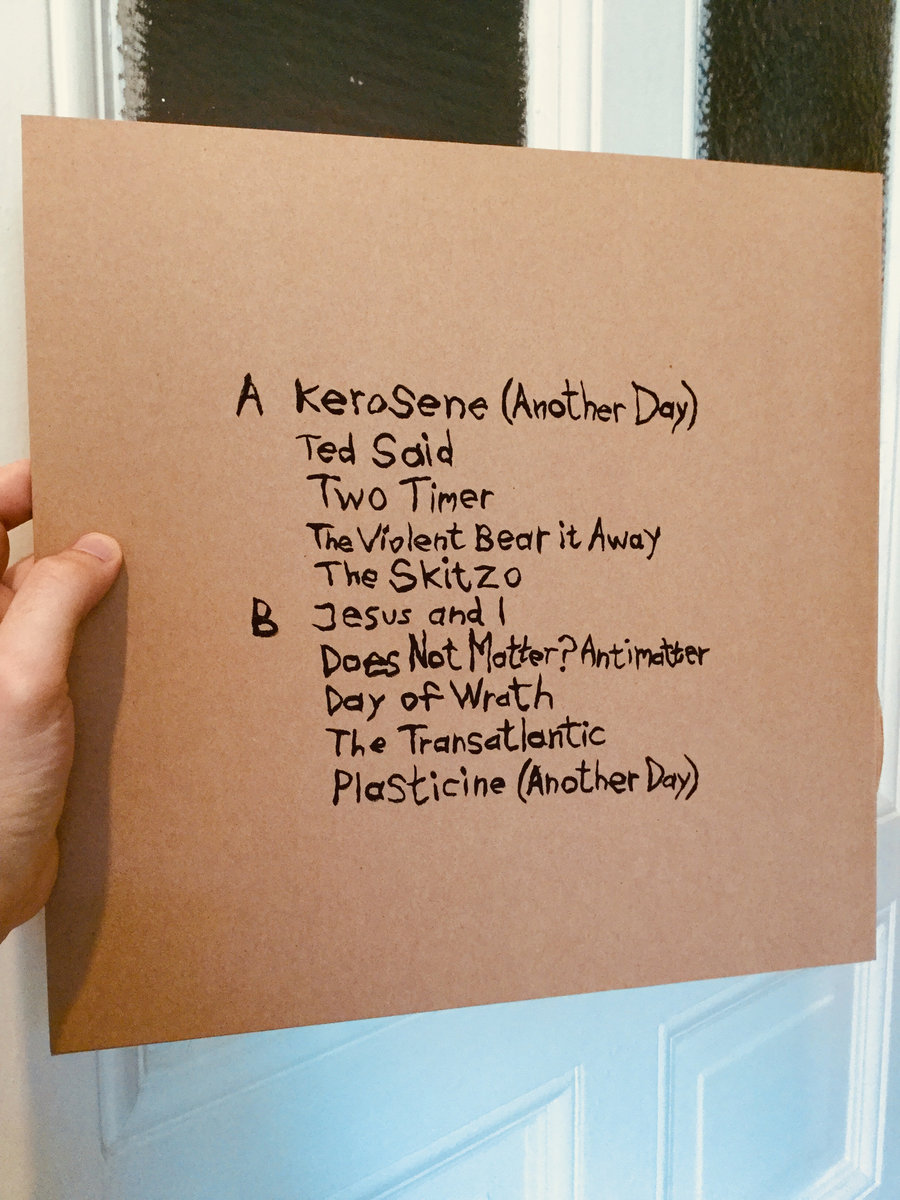 A Kerosene (Another Day)
Ted Said
Two Timer
The Violent Bear it Away
The Skitzo
B Jesus and I
Does Not Matter? Antimatter
Day of Wrath
The Transatlantic
Plasticine (Another Day)